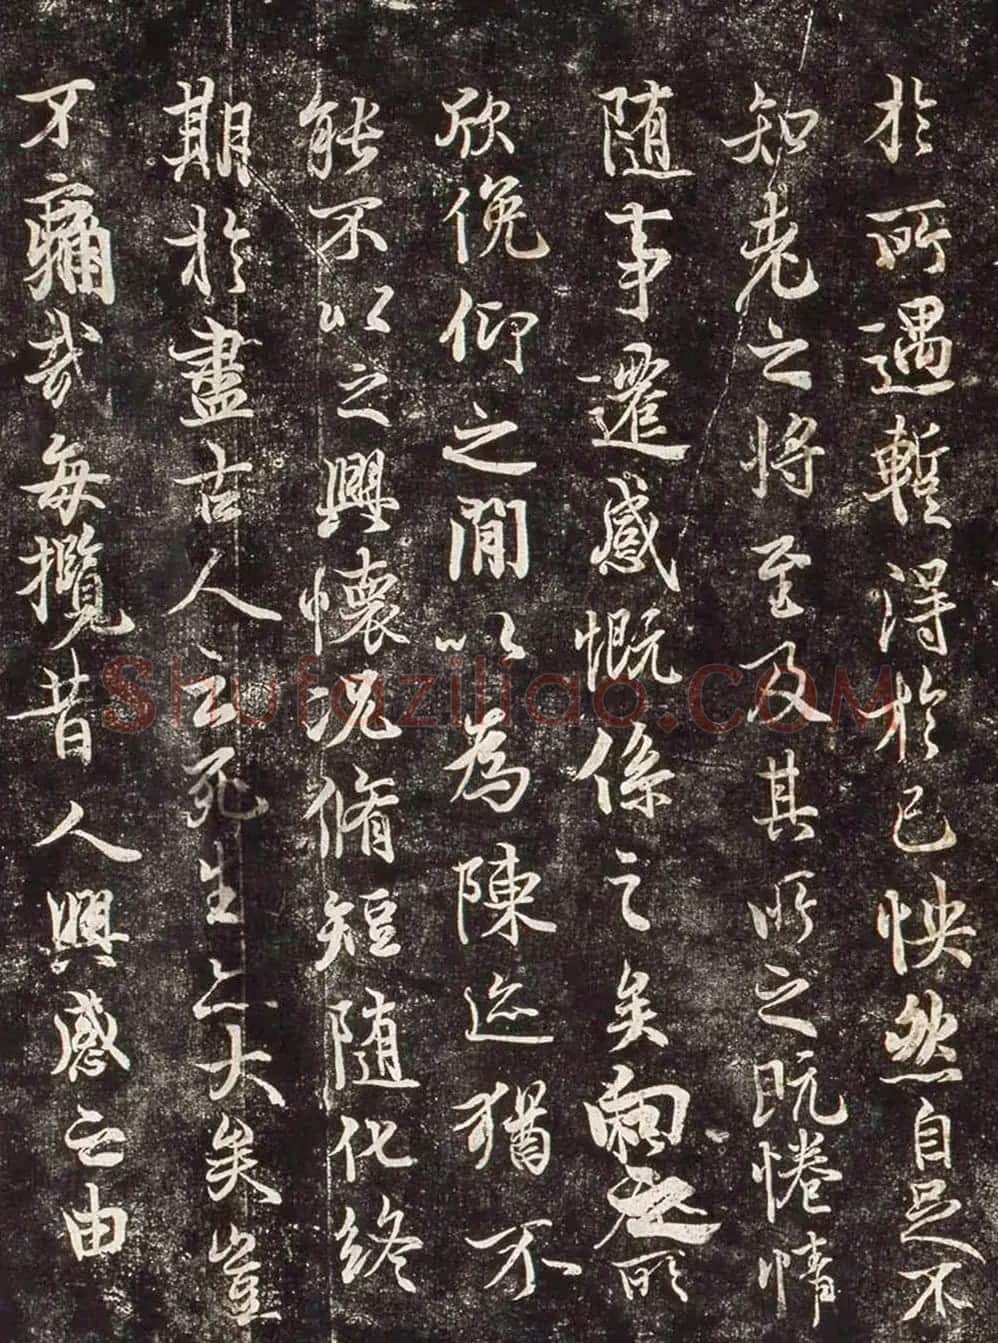 於所遇暫得於己怏然自足不
知老之將至及其所之既惓情
隨事遷感慨係之矣向之所
欣俛仰之閒以為陳迹猶不
能不以之興懷況脩短隨化終
期於盡古人云死生亦大矣豈
不痛哉每攬昔人興感之由
Shufaziliao.COM